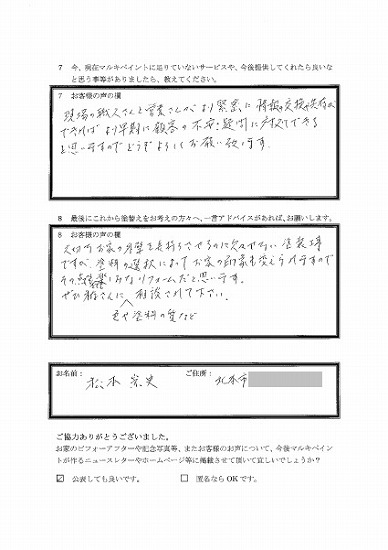 7 今、現在マルキペイントに足りていないサービスや、今後提供してくれたら良いな
と思う事等がありましたら、教えてください。
7 お客様の声の欄
現場の職人さんと営業さんがより緊密に情報の交換や共有が
できればより早期に顧客の不安・疑問に対応できる
と思いますのでどうぞよろしくお願い致します。
8 最後にこれから塗替えをお考えの方々へ、一言アドバイスがあれば、お願いします。
8 お客様の声の欄
大切なお家の外壁を長持ちさせるのに欠かせない塗装工事
ですが、塗料の選択によってお家の印象も変えられますので
リフォームだと思います。
ぜひ 相談されて下さい。
色や塗料の質など
お名前：
ご住所：
ご協力ありがとうございました。
お家のビフォーアフターや記念写真等、またお客様のお声について、今後マルキペイン
トが作るニュースレターやホームページ等に掲載させて頂いて宜しいでしょうか？
公表しても良いです。 匿名ならOKです。